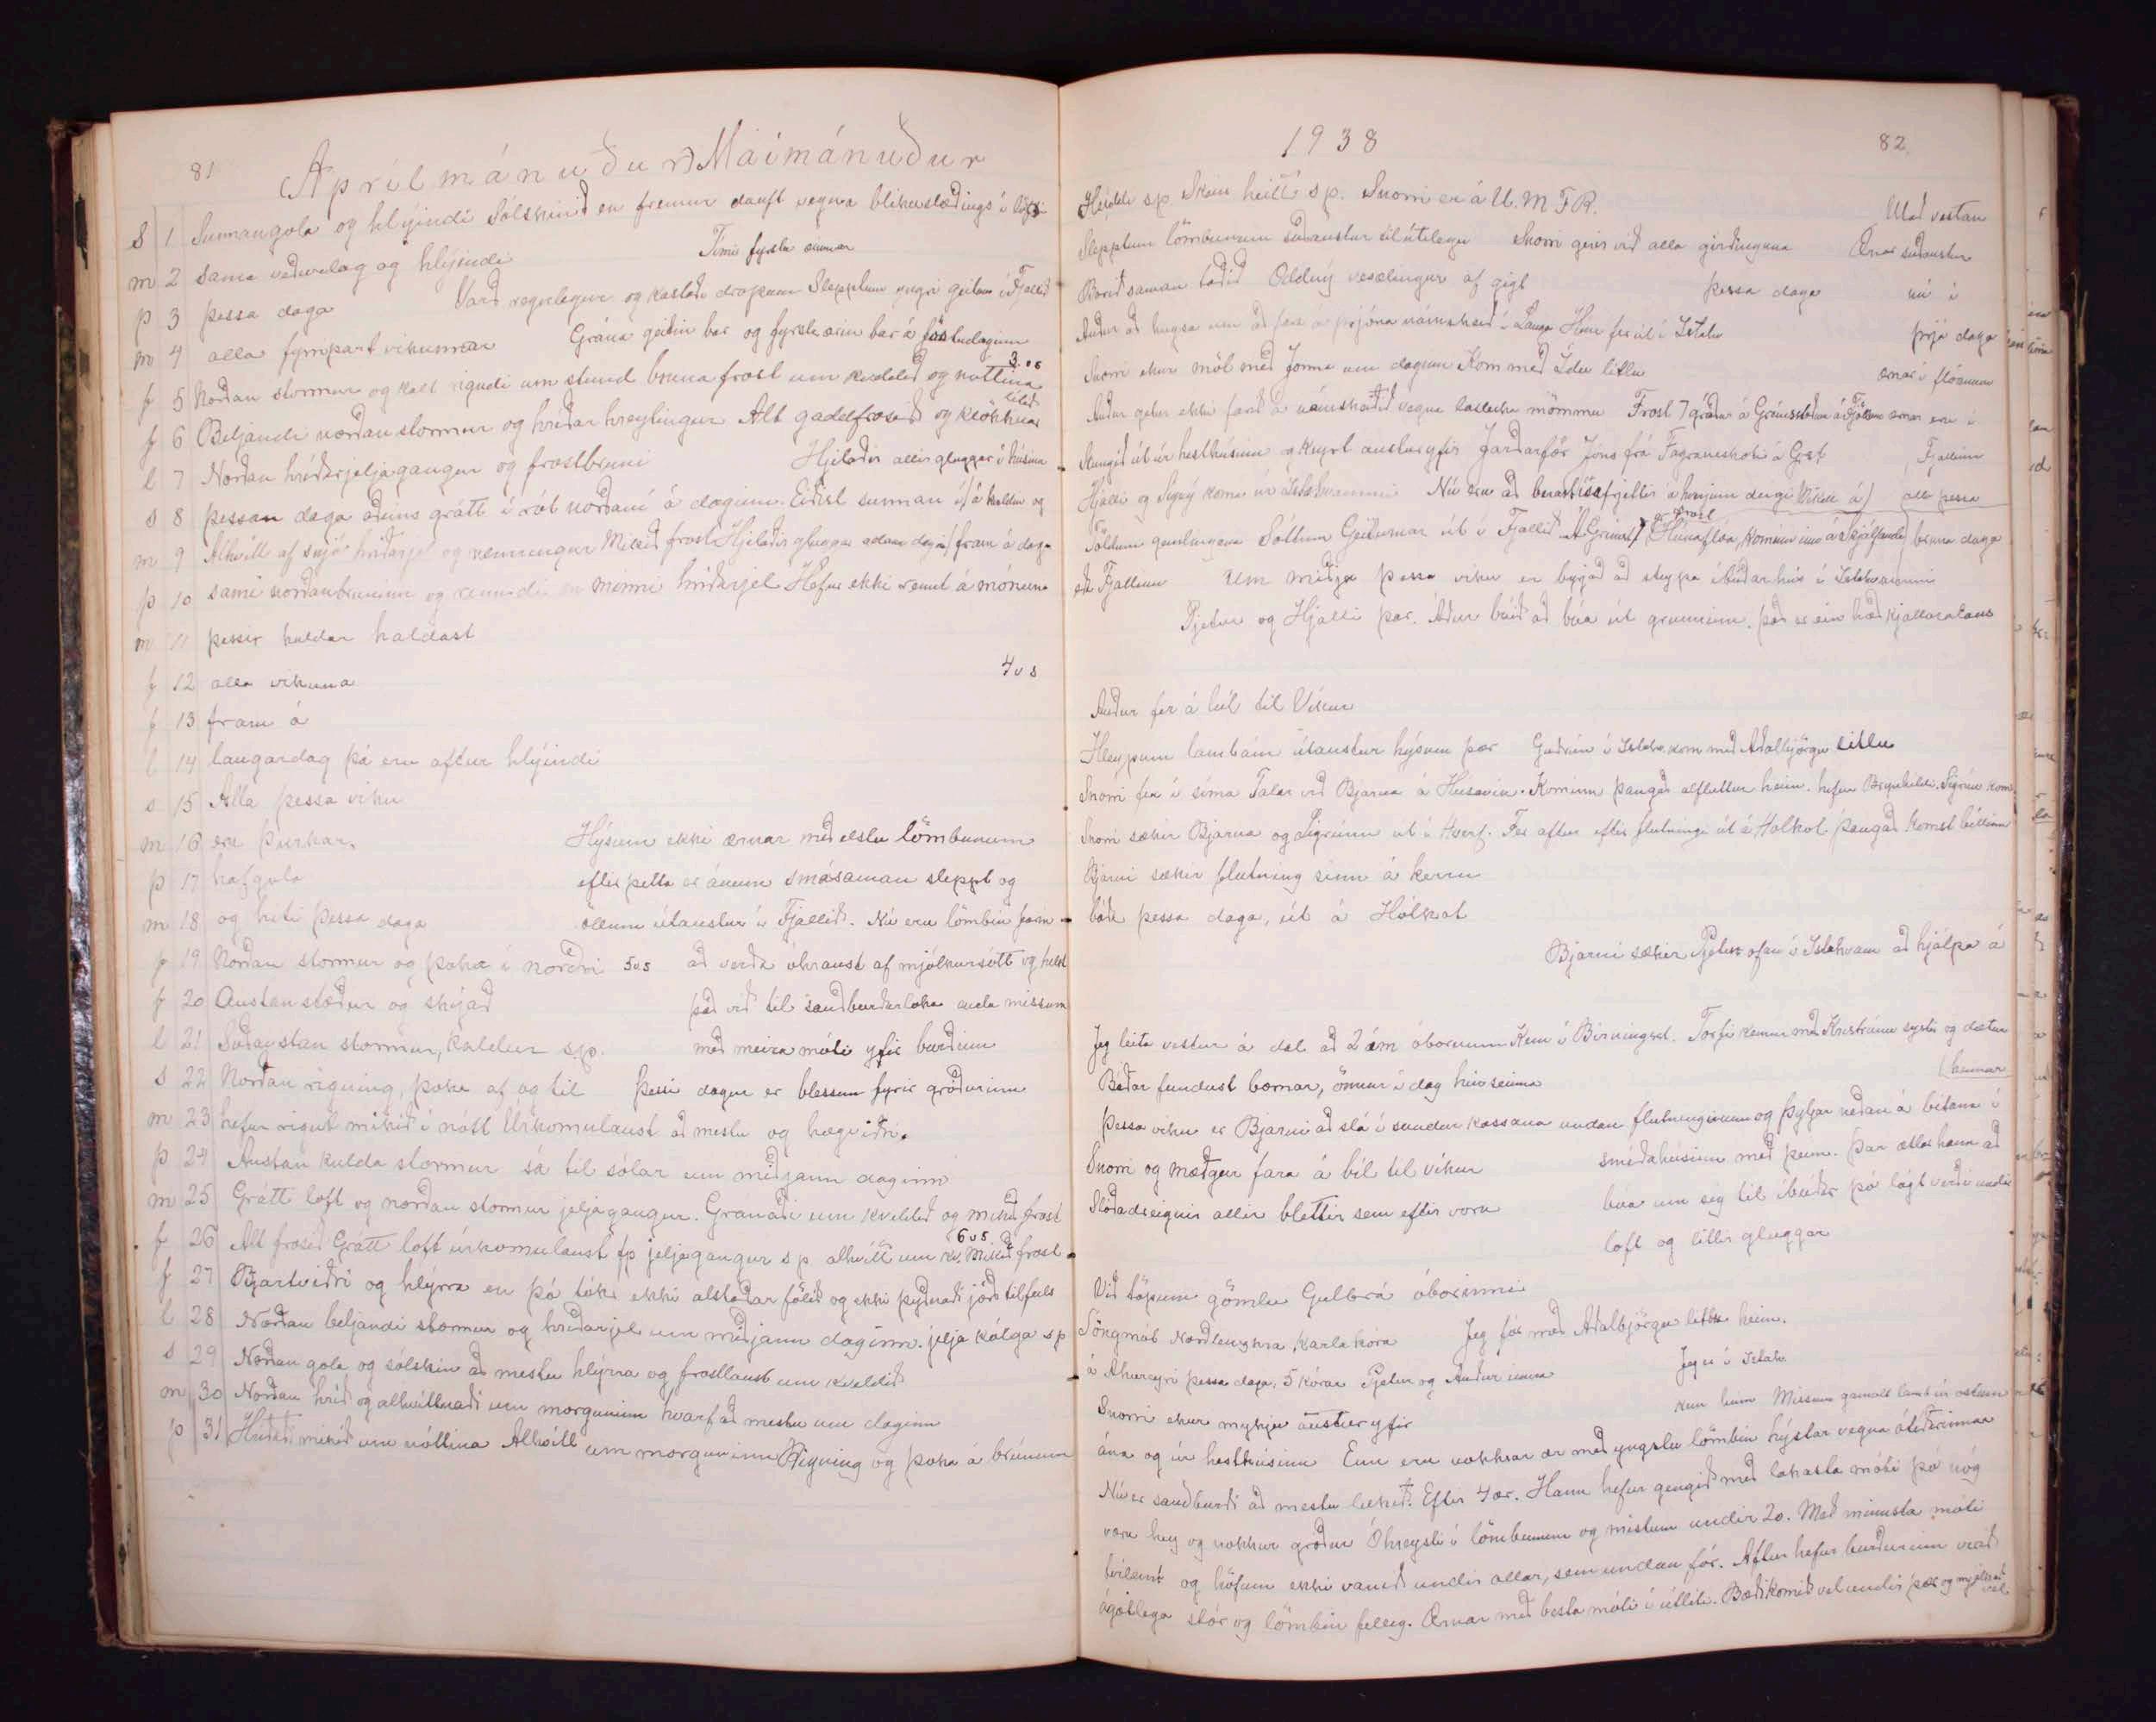 81
Aprílmánuður) Maímánuður
S 1 Sunnangola og hlýindi Sólskinið en fremur dauft vegna blikuslæðings í
m 2 sama veðurlag og hlýindi Tími fyrsta sinnar
þ 3 þessa daga Varð regnlegur og kastaði dropum Slepptum yngri geitum í Fjallið
m 4 alla fyrripart vikunnar Grána geitin bar og fyrsta ærin bar á föstudaginn
3. v s
f 5 Norðan stormur og kalt rigndi um stund bruna frost um kveldið og nóttina
lítið
f 6 Beljandi norðanstormur og hríðar hreytingur Alt gaddfrosið og klökknar
l 7 Norðan hríðarjeljagangur og frostbruni Hjelaðir allir gluggar í húsinu
s 8 þessan daga aðeins grátt í rót norðaní á daginn. Eiðist sunnan í) á kveldin og
m 9 Alhvítt af snjó hríðarjel og renningur Mikið frost Hjelaðir gluggar fram á daga
þ 10 sami norðanbruninn og renndi en minni hríðarjel Hefur ekki rennt á mónum
m 11 þessir kuldar haldast
f 12 alla vikuna 4 v s
f 13 fram á
l 14 laugardag þá eru aftur hlýindi
s 15 Alla þessa viku
m 16 eru þurkar, Hýsum ekki ærnar með elstu lömbunum
þ 17 hafgola eftir þetta er ánum smásaman sleppt og
m 18 og hiti þessa daga öllum útaustur í Fjallið. Nú eru lömbin farin
f 19 Norðan stormur og þoka í norðri 5 v s að verða óhraust af mjólkursótt og helst
f 20 Austanstæður og skýjað það við til sauðburðarloka auda missum
l 21 Suðaustan stormur, kaldur s.p. með meira móti yfir burðinn
s 22 Norðan rigning, þoka af og til Þessi dagur er blessun fyrir gróðurinn
m 23 hefur rignt mikið í nótt Úrkomulaust að mestu og hægviðri.
þ 24 Austan kulda stormur sá til sólar um miðjann daginn
m 25 Grátt loft og norðan stormur jeljagangur. Gránaði um kveldið og mikið frost
6 v s
f 26 Alt frosið Grátt loft úrkomulaust fp jeljagangur s p alhvítt um kv. Mikið frost
f 27 Bjartviðri og hlýrra en þó tóks ekki alstaðar fölið og ekki þýðnaði jörð til fuls
l 28 Norðan beljandi stormur og hríðarjel um miðjann daginn. jelja kólga s p
s 29 Norðan gola og sólskin að mestu hlýrra og frostlaust um kveldið
m 30 Norðan hríð og alhvítnaði um morguninn hvarf að mestu um daginn
þ 31 Hríðaði mikið um nóttina Alhvítt um morguninn Rigning og þoka á brúnum
1938
82
sp. Skein heitt s p. Snorri er á U. M. F R. Með vestan
Slepptum lömbunum suðaustur til útilegu Snorri gerir við alla girðinguna Ærnar suðaustur
Borið saman taðið Oddný vesælingur af gigt þessa daga nú í
Auður að hugsa um að fara á prjóna námskeið í Lauga Hún fer út í Ístahv þrjá daga
Snorri ekur möl með Jonna um daginn Kom með Ídu litlu ærnar í flóanum
Auður getur ekki farið á námskeiðið vegna lasleika mömmu Frost 7 gráða á Grímsstöðum á Fjöllum ærnar eru í
Stungið út úr hesthúsinu og keyrt austuryfir Jarðarför Jóns frá Fagraneskoti á Grst. Fjallinu
Hjalli og Signý koma úr Nú eru að berast ísafrjettir á hverjum degi (Mikill á) alla þessa
er frost
Töldum gemlingana Sóttum Geiturnar út í Fjallið Á Gríms) (Húnaflóa, kominn inn á Skjálfanda) bruna daga
eða Fjallinu Um miðja þessa viku er byrjað að steypa íbúðarhús í Ístahvammi
Pjetur og Hjalli þar. Áður búið að búa út grunninn. það er ein hæð kjallaralaus
Auður fer á bíl til Víkur
Hleypum lambám útaustur hýsum þær Guðrún í Ístahv. kom með Aðalbjörgu litlu
Snorri fer í síma Talar við Bjarna á Húsavík. Kominn þangað alfluttur heim. hefur Brynhildi. Sigrún kom
Snorri sækir Bjarna og Sigrúnu út í Hverf. Fer aftur eftir flutningi út á Hólkot þangað komst bíllinn
Bjarni sækir flutning sinn á kerru
báða þessa daga, út á Hólkot
Bjarni sækir Pjetur ofan í Ístahvam að hjálpa á
Jeg leita vestur á dal að 2 ám óbornum Kem í Birningsst. Torfi kemur með Kristrúnu systir og dætur
(hennar
Báðar fundust bornar, önnur í dag hin seinna
Þessa viku er Bjarni að slá í sundur kassana undan flutninginum og þyljar neðan á bitana í
Snorri og mæðgur fara á bíl til víkur smíðahúsinu með þeim. Þar ætlar hann að
Slóðadregnir allir blettir sem eftir voru búa um sig til íbúðar þó lágt verði undir
loft og litlir gluggar
Við töpum gömlu Gulbrá óborinni
Söngmót Norðlenskra karlakóra Jeg fór með Aðalbjörgu litlu heim.
á Akureyri þessa daga, 5 kórar Pjetur og Auður Jeg er í Ístahv.
Snorri ekur mykju austuryfir kem heim Missum gamalt lamb úr
ána og úr hesthúsinu Enn eru nokkrar ær með yngstu lömbin hýstar vegna ótíðarinnar
Nú er sauðburði að mestu lokið. Eftir 4 ær. Hann hefur gengið með lakasta móti þó nóg
væru hey og nokkur gróður Óhreysti í lömbunum og mistum undir 20. Með minnsta móti
tvílemt og höfum ekki vanið undir allar, sem undan fór. Aftur hefur burðurinn verið
ágætlega stór og lömbin falleg. Ærnar með besta móti í útliti. Bæði komið vel undir þær og mjólkað vel